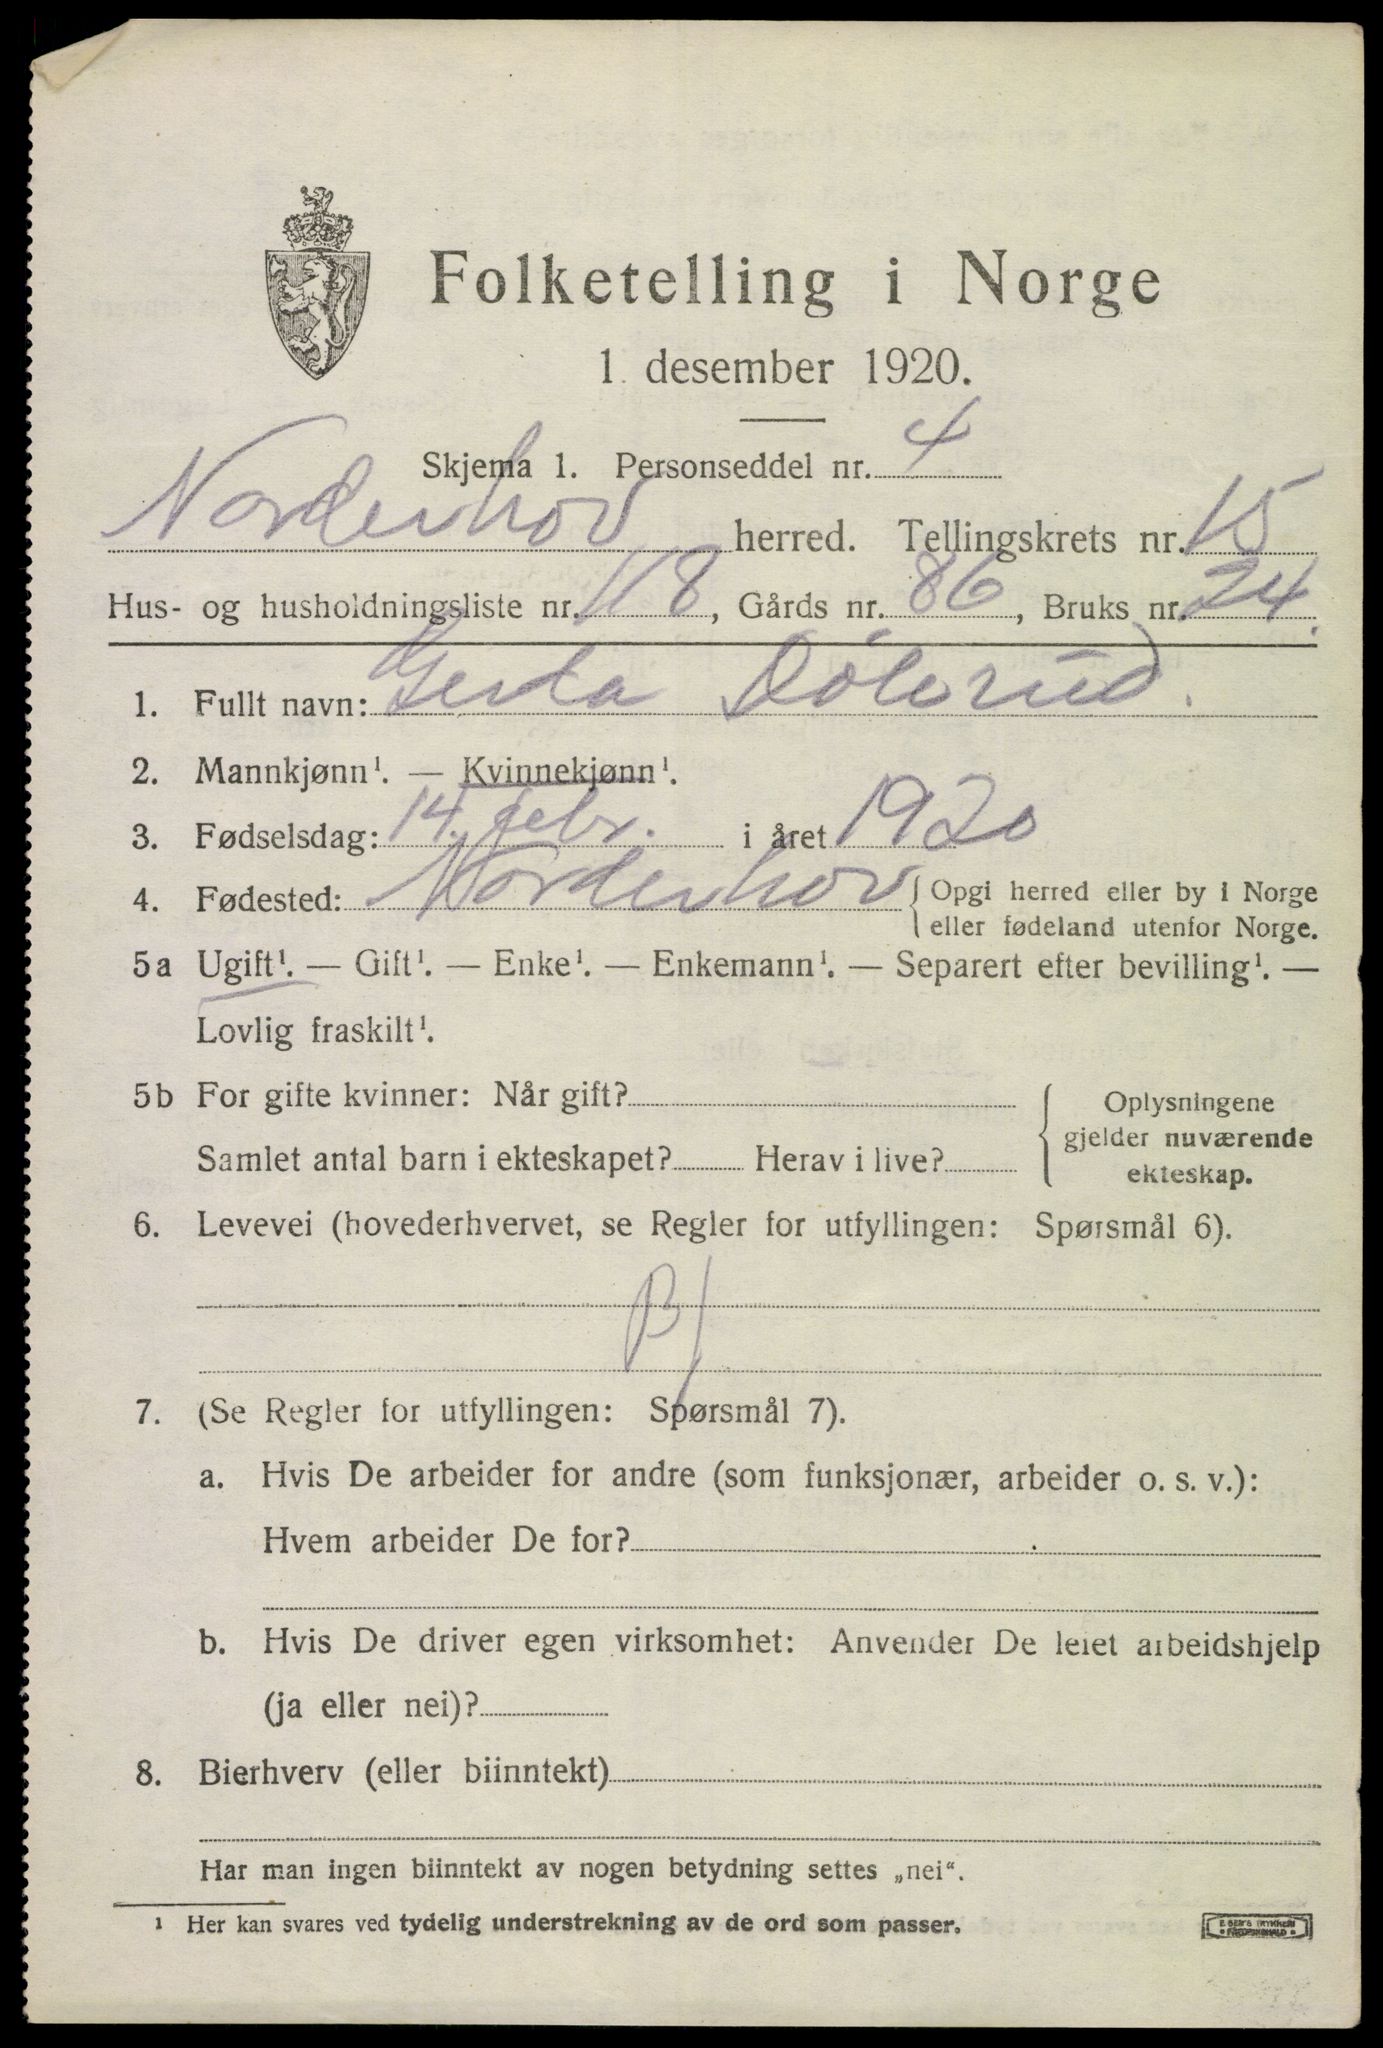 Folketelling i Norge
1. desember 1920.
Skjema 1. Personseddel nr. 4
Norderhov herred. Tellingskrets nr. 15
Hus- og husholdningsliste nr. 118, Gårds nr. 86, Bruks nr. 24.
1. Fullt navn: Gerda Dölerud.
2. Mannkjønn¹. — Kvinnekjønn¹.
3. Fødselsdag: 14. febr. i året 1920
4. Fødested: Norderhov { Opgi herred eller by i Norge
eller fødeland utenfor Norge.
5a Ugift¹. — Gift¹. — Enke¹. — Enkemann¹. — Separert efter bevilling¹. —
Lovlig fraskilt¹.
5b For gifte kvinner: Når gift?
Samlet antal barn i ekteskapet? Herav i live?
Oplysningene
gjelder nuværende
ekteskap.
6. Levevei (hovederhvervet, se Regler for utfyllingen: Spørsmål 6).
B/
7. (Se Regler for utfyllingen: Spørsmål 7).
a. Hvis De arbeider for andre (som funksjonær, arbeider o. s. v.):
Hvem arbeider De for?
b. Hvis De driver egen virksomhet: Anvender De leiet arbeidshjelp
(ja eller nei)?
8. Bierhverv (eller biinntekt)
Har man ingen biinntekt av nogen betydning settes „nei“.
¹ Her kan svares ved tydelig understrekning av de ord som passer.